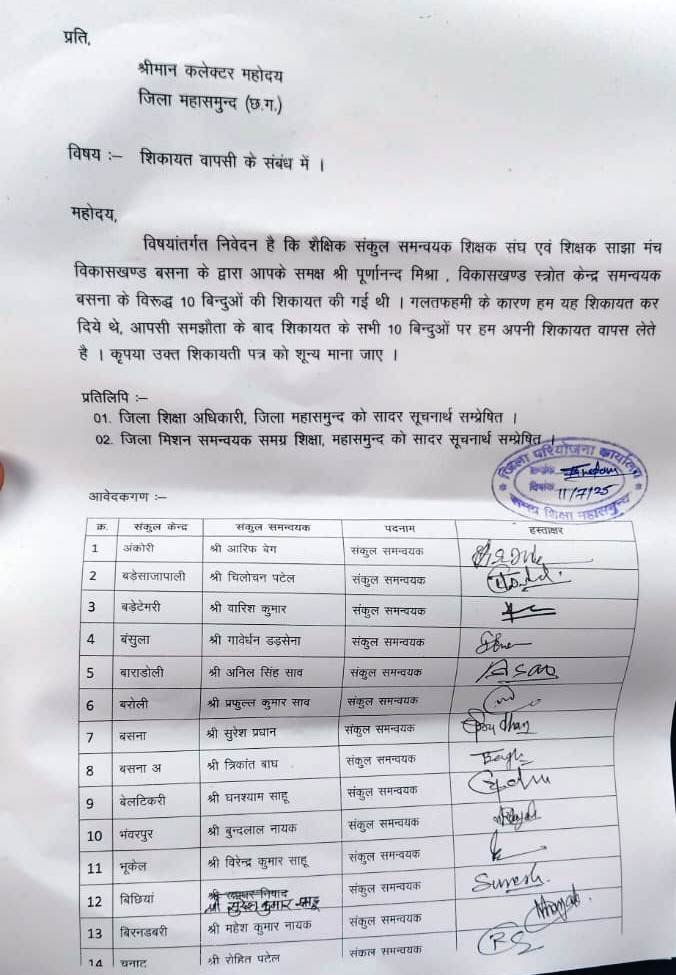 प्रति,
श्रीमान कलेक्टर महोदय
जिला महासमुन्द (छ.ग.)
विषय :– शिकायत वापसी के संबंध में ।
महोदय,
विषयांतर्गत निवेदन है कि शैक्षिक संकुल समन्वयक शिक्षक संघ एवं शिक्षक साझा मंच
विकासखण्ड बसना के द्वारा आपके समक्ष श्री पूर्णानन्द मिश्रा , विकासखण्ड स्त्रोत केन्द्र समन्वयक
बसना के विरूद्ध 10 बिन्दुओं की शिकायत की गई थी । गलतफहमी के कारण हम यह शिकायत कर
दिये थे, आपसी समझौता के बाद शिकायत के सभी 10 बिन्दुओं पर हम अपनी शिकायत वापस लेते
है । कृपया उक्त शिकायती पत्र को शून्य माना जाए ।
प्रतिलिपि :–
01. जिला शिक्षा अधिकारी, जिला महासमुन्द को सादर सूचनार्थ सम्प्रेषित ।
02. जिला मिशन समन्वयक समग्र शिक्षा, महासमुन्द को सादर सूचनार्थ सम्प्रेषित ।
जिला परियोजना कार्यालय
दिनांक 11/7/25
समग्र शिक्षा महासमुन्द
आवेदकगण :–
क्र. संकुल केन्द्र संकुल समन्वयक पदनाम हस्ताक्षर
1 अंकोरी श्री आरिफ बेग संकुल समन्वयक
2 बड़ेसाजापाली श्री चिलोचन पटेल संकुल समन्वयक
3 बड़ेटेमरी श्री वारिश कुमार संकुल समन्वयक
4 बंसुला श्री गावेर्धन डड़सेना संकुल समन्वयक
5 बाराडोली श्री अनिल सिंह साव संकुल समन्वयक
6 बरोली श्री प्रफुल्ल कुमार साव संकुल समन्वयक
7 बसना श्री सुरेश प्रधान संकुल समन्वयक
8 बसना अ श्री त्रिकांत बाघ संकुल समन्वयक Bagh
9 बेलटिकरी श्री घनश्याम साहू संकुल समन्वयक
10 भंवरपुर श्री बुन्दलाल नायक संकुल समन्वयक
11 भूकेल श्री विरेन्द्र कुमार साहू संकुल समन्वयक
12 बिछियां श्री निषाद संकुल समन्वयक Suresh.
श्री सुरेश कुमार साहू
13 बिरनडबरी श्री महेश कुमार नायक संकुल समन्वयक
14 चनाट श्री रोहित पटेल संकुल समन्वयक